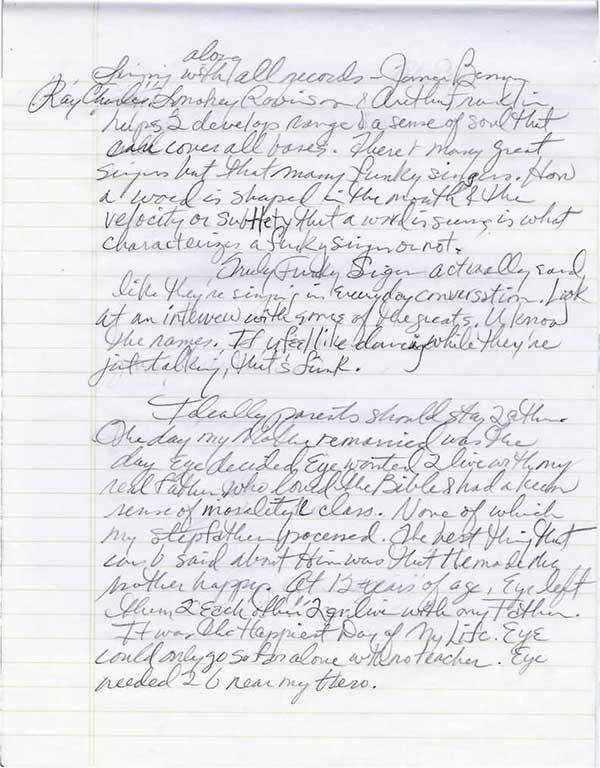 along
Singing with all records - James Brown
Ray Charles, Smokey Robinson & Aretha Franklin
helps 2 develop range & a sense of soul that
can cover all bases. There R many great
singers but that many funky singers. How
a word is shaped in the mouth & the
velocity or subtlety that a word is sung is what
characterizes a funky singer or not.
Truly Funky Singers actually sound
like they're singing in everyday conversation. Look
at an interview with some of the greats. U know
the names. If u feel like dancing while they're
just talking, that's funk.
Ideally parents should stay 2gether.
The day my Mother remarried was the
day Eye decided Eye wanted 2 live with my
real father who loved the Bible & had a keen
sense of morality & class. None of which
my stepfather processed. The best thing that
can b said about Him was that He made My
mother happy. At 12 years of age, Eye left
them 2 Each other 2 go live with my Father.
It was the Happiest Day of My Life. Eye
could only go so far alone with no teacher. Eye
needed 2 b near my Hero.